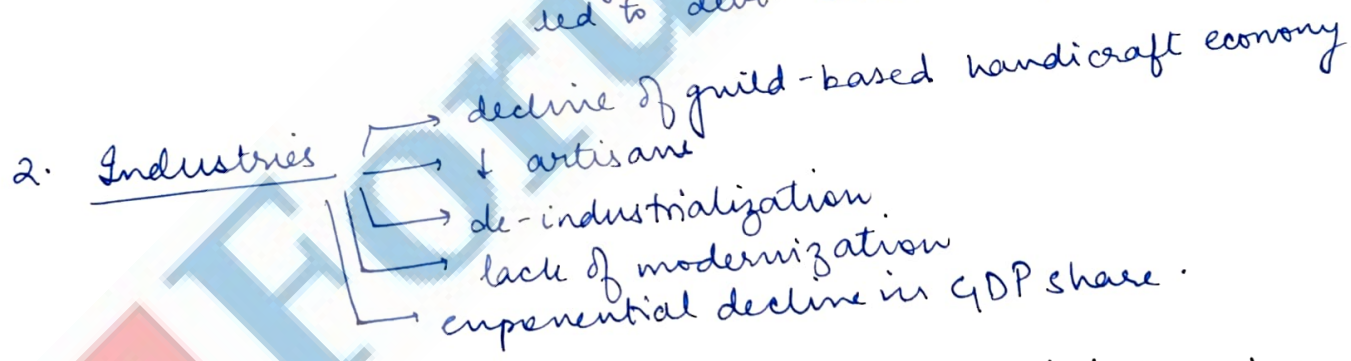 led to
decline of guild-based handicraft economy
2. Industries → ↓ artisans
de-industrialization
lack of modernization
exponential decline in GDP share.